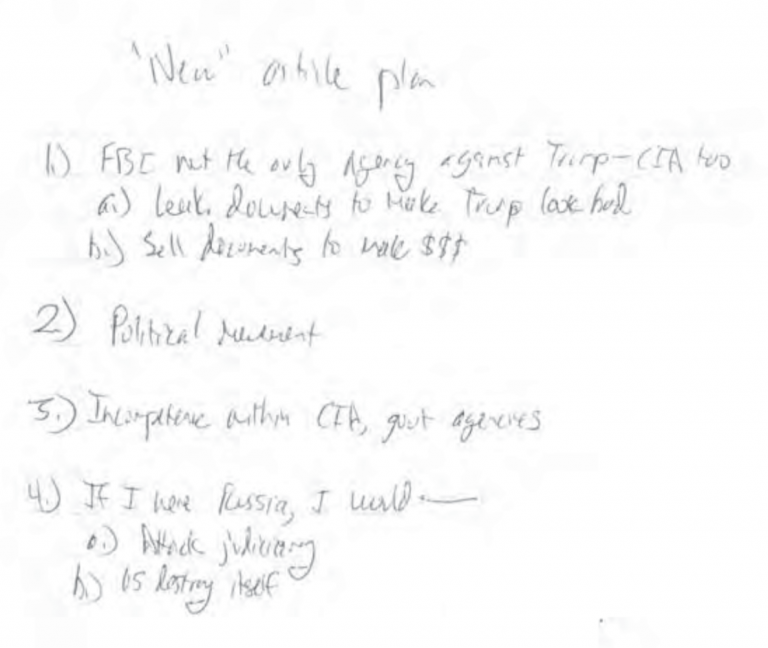 "New" article plan
1.) FBI not the only Agency against Trump-CIA too
a.) Leak documents to make Trump look bad
b.) Sell documents to make $$$
2) Political
3.) Incompetence within CIA, govt agencies
4.) If I were Russia, I would
a.) Attack judiciary
b.) US destroy itself